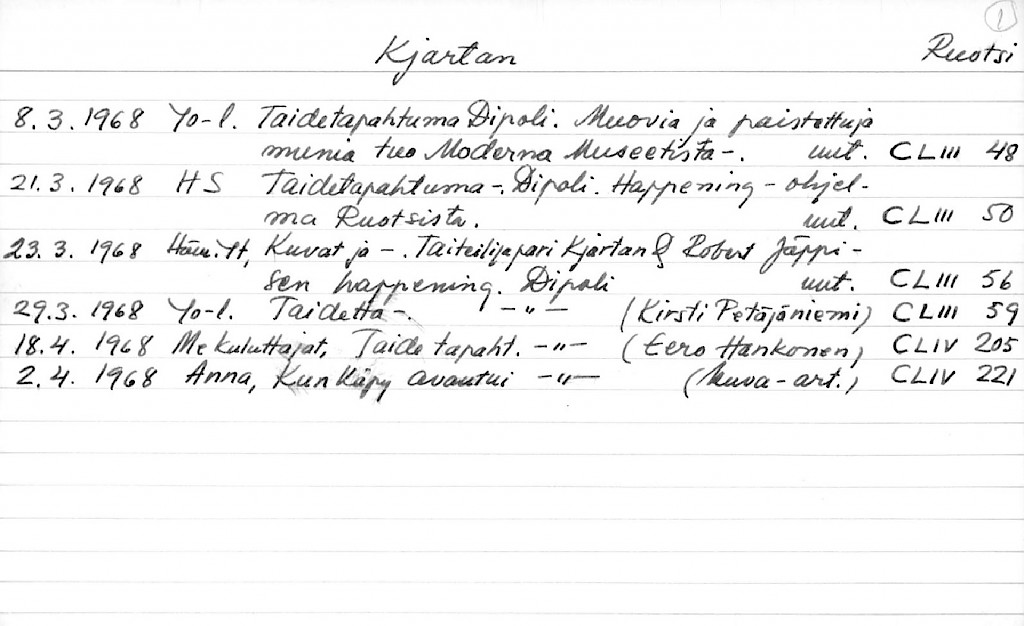 1
Kjartan Ruotsi
8.3.1968 Yo-l. Taidetapahtuma Dipoli. Muovia ja paistettuja
munia tuo Moderna Museetista-. uut. CLIII 48
21.3.1968 HS Taidetapahtuma-. Dipoli. Happening-ohjel-
ma Ruotsista. uut. CLIII 50
23.3.1968 Kuvat ja -. Taiteilijapari Kjartan & Robert Jäppi-
sen happening. Dipoli uut. CLIII 56
29.3.1968 Yo-l. Taidetta-. -"- (Kirsti Petäjäniemi) CLIII 59
18.4.1968 Me kuluttajat, Taidetapaht. -"- (Eero Hankonen) CLIV 205
2.4.1968 Anna, Kun Käpy avautui -"- (kuva-art.) CLIV 221